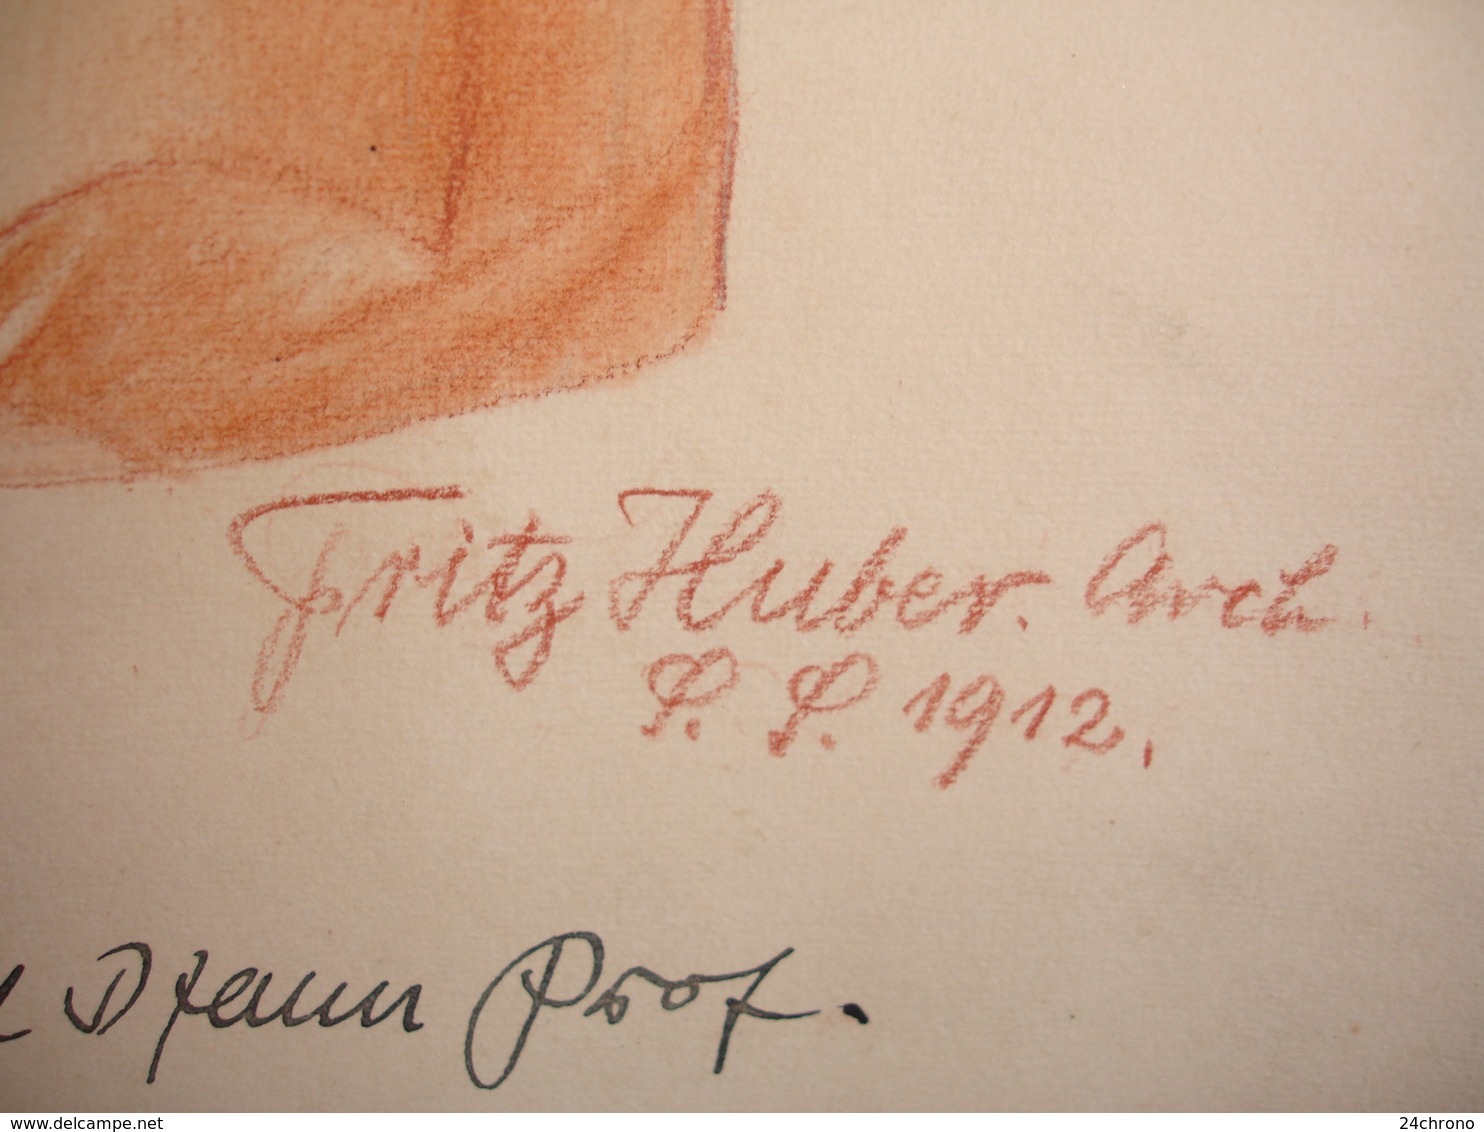 Fritz Huber. Arch.
S. S. 1912.
Pfann Prof.
www.delcampe.net
24chrono